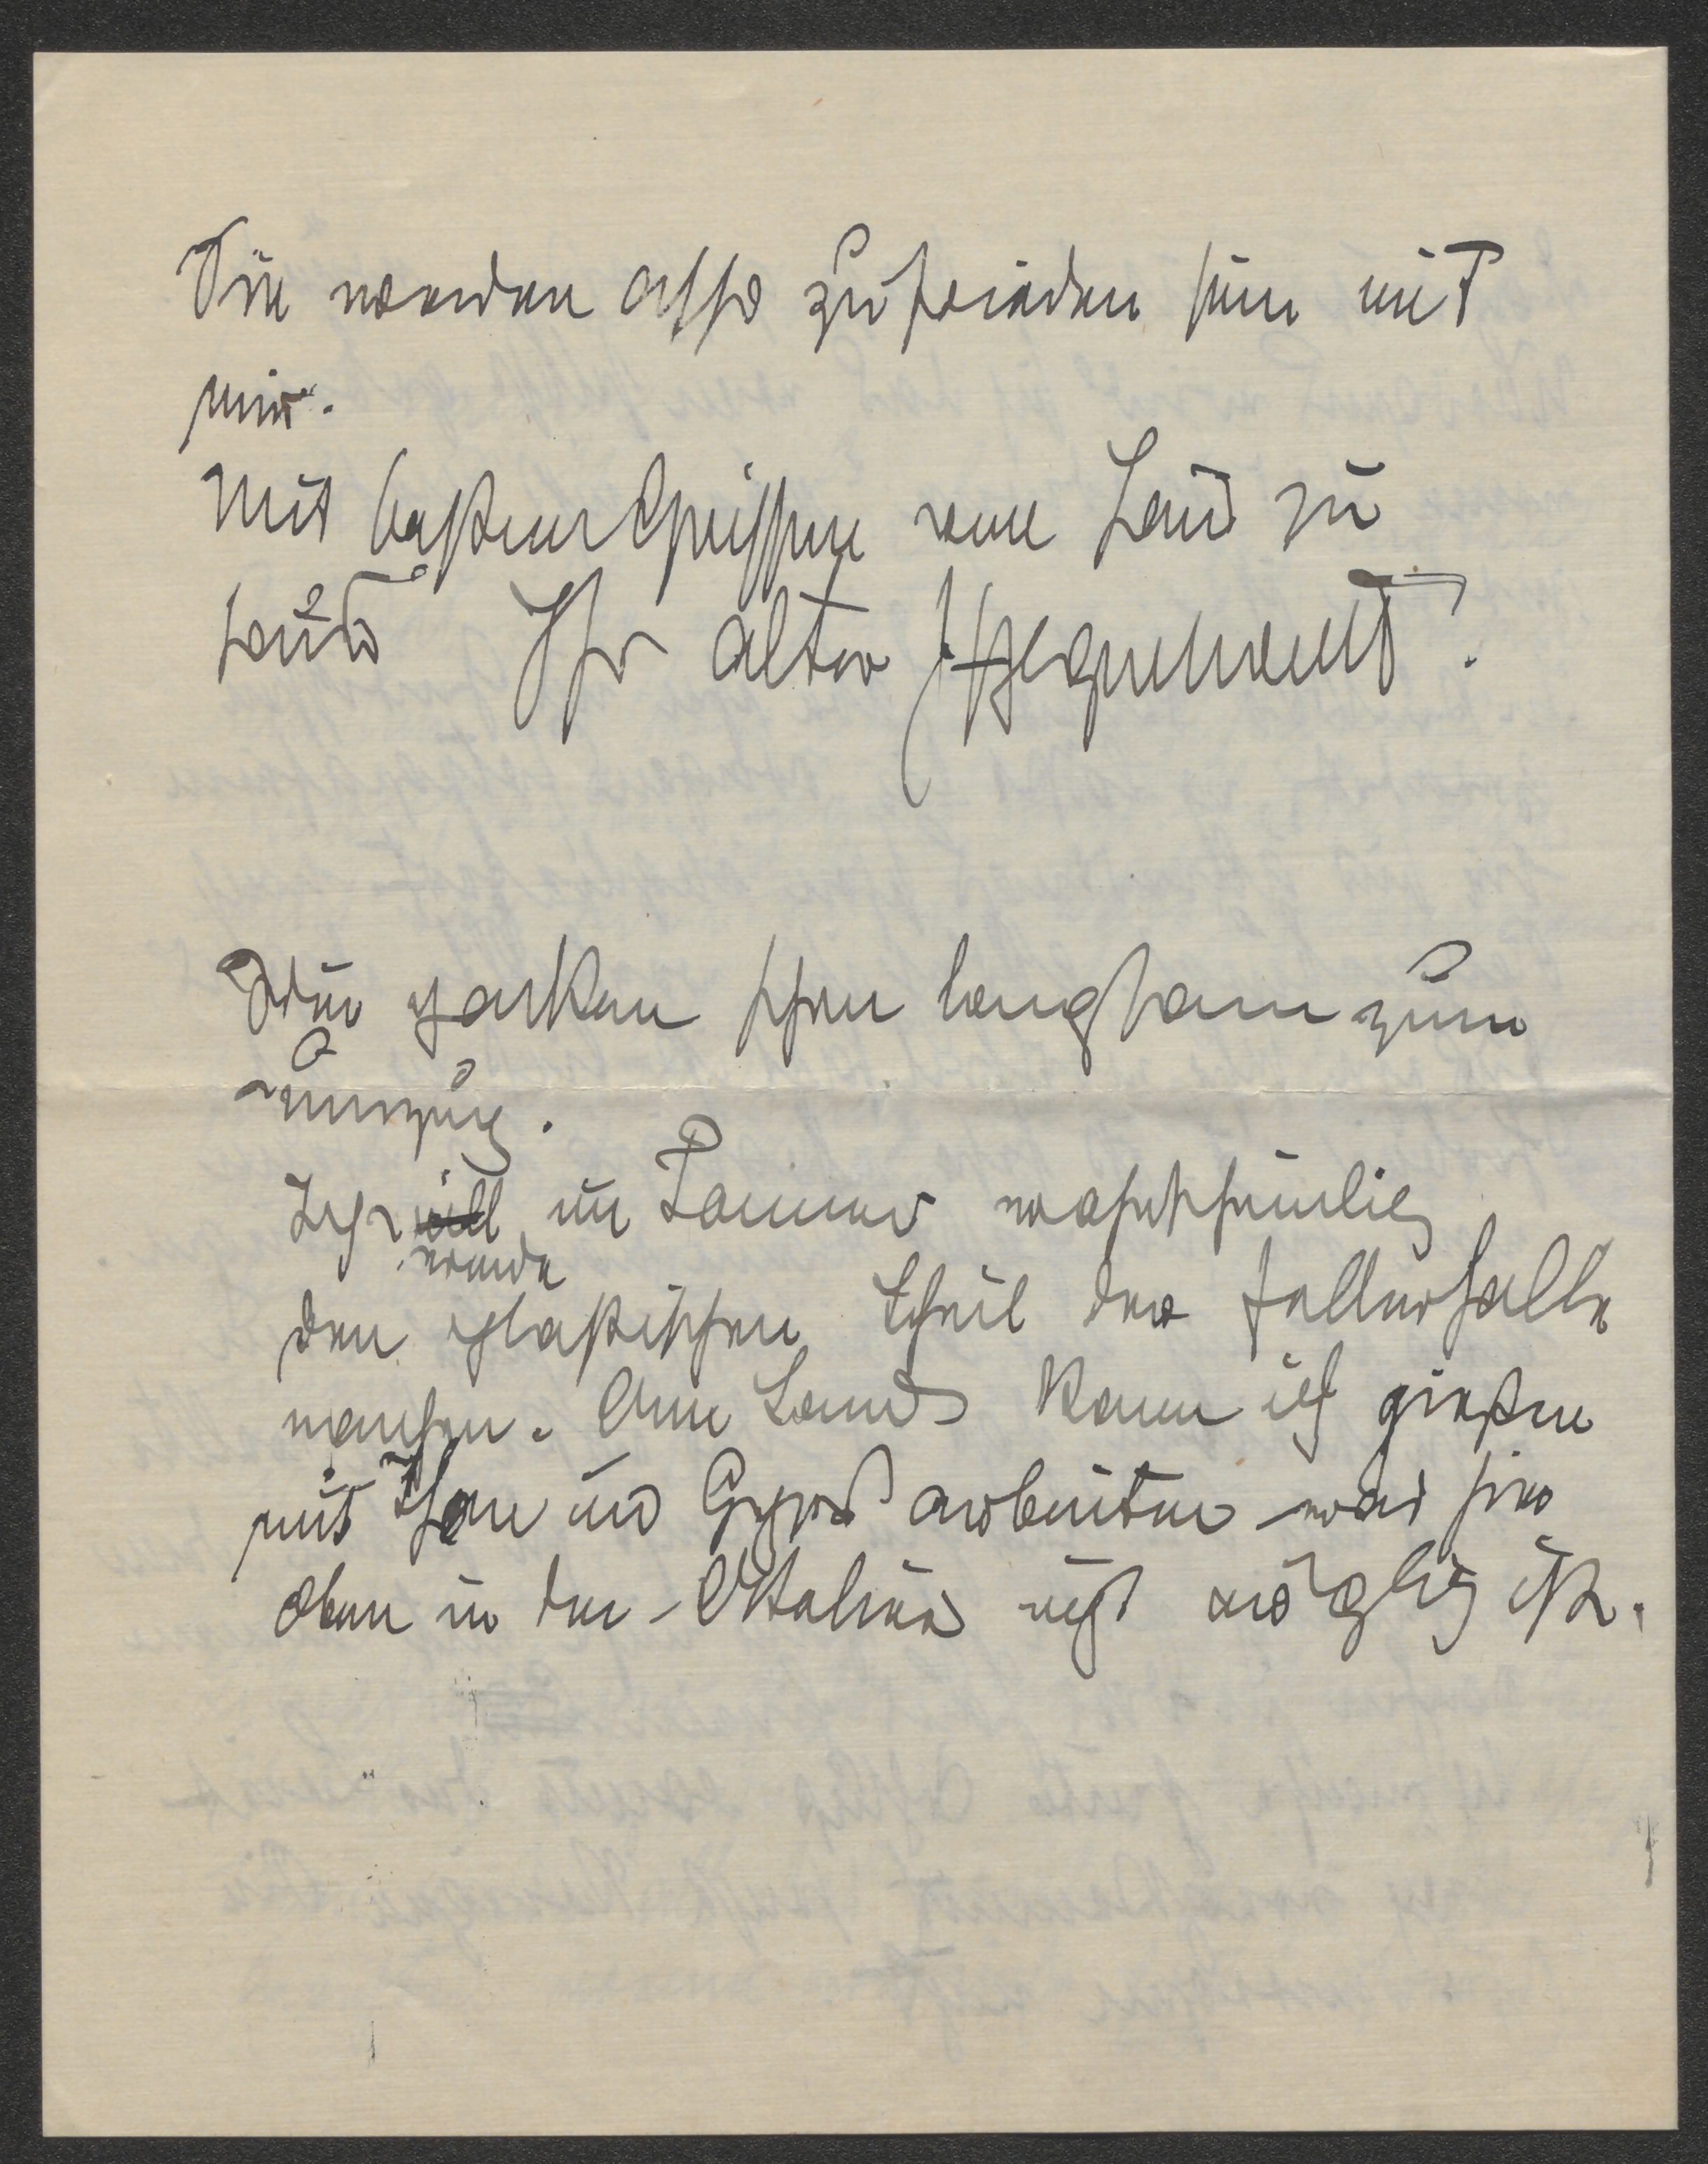 Sie werden also zufrieden sein mit
mir.
Mit besten Grüssen von Haus zu
Haus Ihr alter Hegenbart.
Wir packen schon langsam zum
Umzug.
Ich will im Sommer wahrscheinlich
werde
den plastischen Theil der Kellerhalle
machen. Am Land kann ich gießen
mit Thon und Gyps arbeiten was hier
oben in dem Atelier nicht möglich ist.